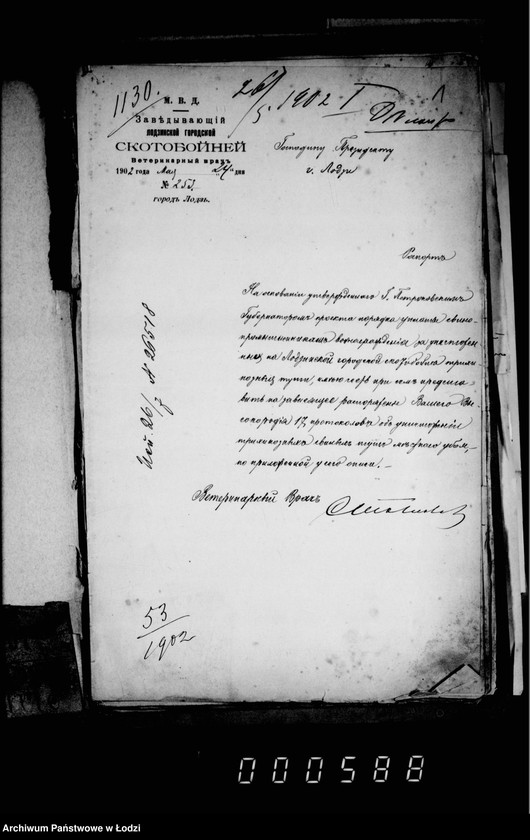 1130.
26/5 1902 I
М. В. Д.
Завѣдывающій
ЛОДЗИНСКОЙ ГОРОДСКОЙ
СКОТОБОЙНЕЙ
Ветеринарный врачъ
1902 года Мая 24 дня
№ 253
городъ Лодзь.
Господину Президенту
г. Лодзи
Рапортъ
На основаніи утвержденнаго Г. Петроковскимъ
Губернаторомъ проекта порядка уплаты свино-
промышленникамъ вознагражденія за уничтожен-
ныя на Лодзинской городской скотобойнѣ трихи-
нозныя туши, имѣю честь при семъ представ-
ить на зависящее распоряженіе Вашего Вы-
сокородія 17 протоколовъ объ уничтоженіи
трихинозныхъ свиныхъ тушъ
по приложенной у сего описи.
Ветеринарный Врачъ
№ 26518
53/1902
000588
Archiwum Państwowe w Łodzi